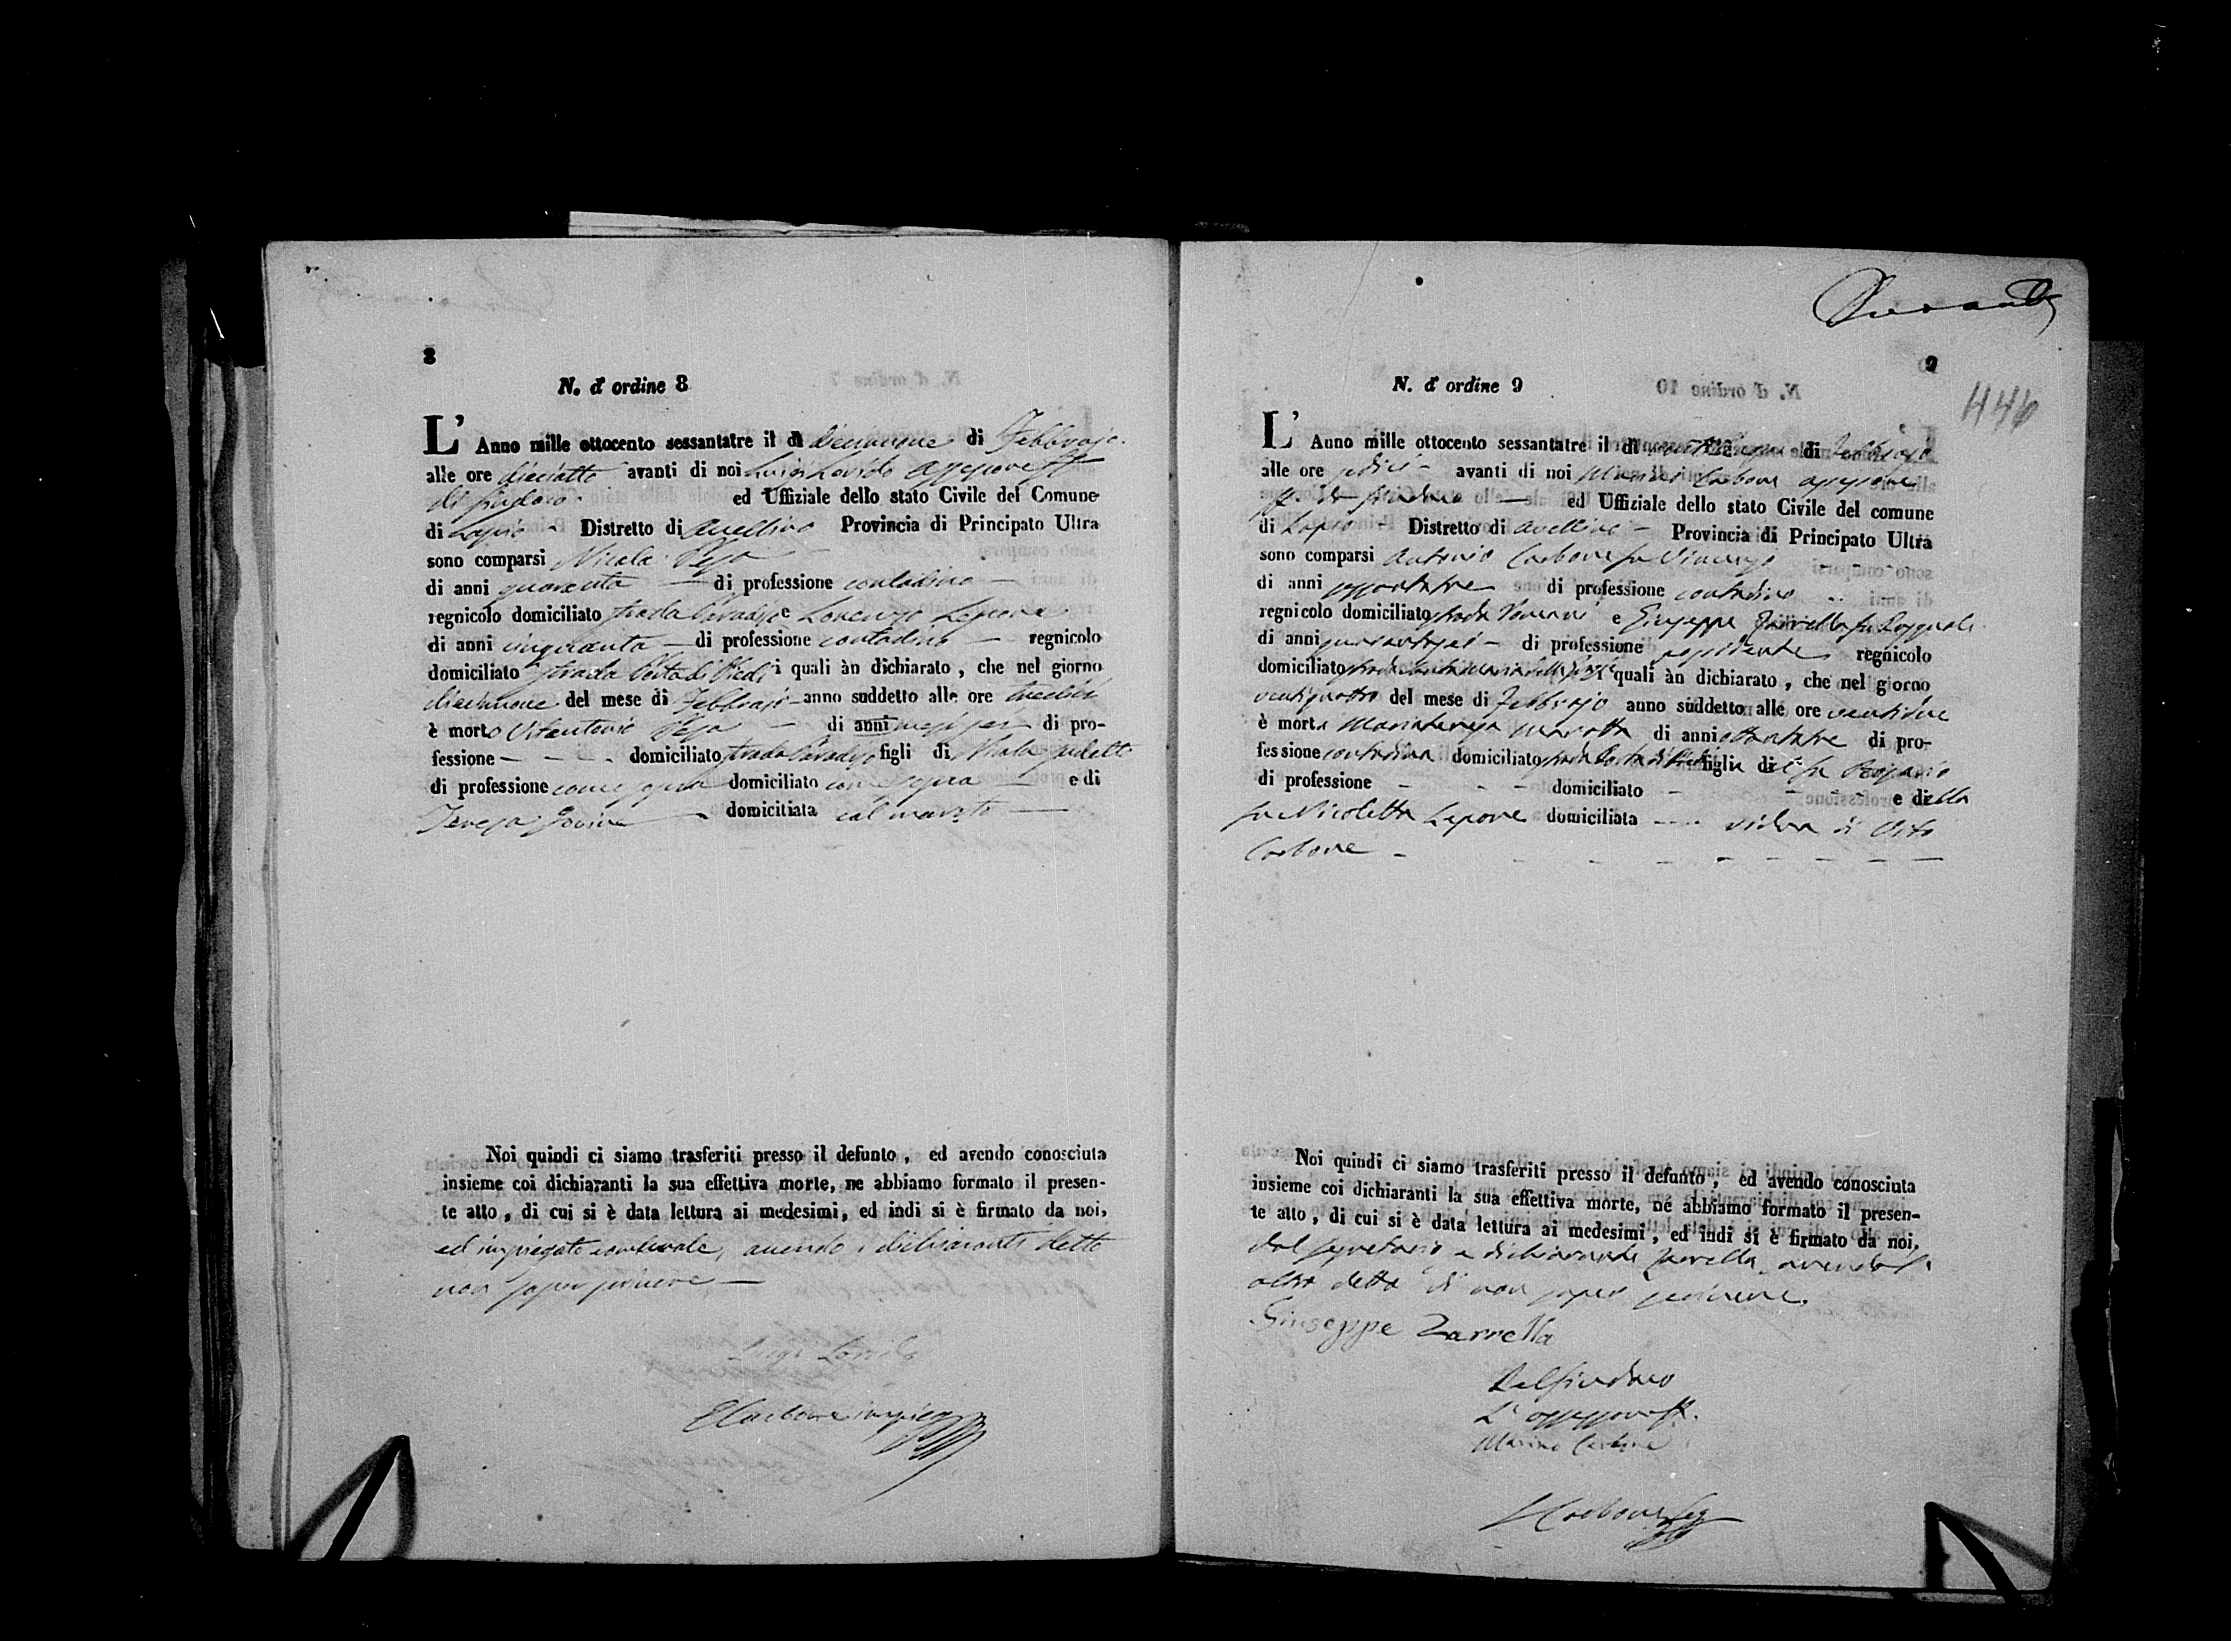 8
N. d' ordine 8
L' Anno mille ottocento sessantatre il dì diecinnove di Febbrajo
alle ore dieciotto avanti di noi Luigi assessore ff
di sindaco ed Uffiziale dello stato Civile del Comune
di Lapio Distretto di Avellino Provincia di Principato Ultra
sono comparsi Nicola
di anni quaranta di professione contadino
regnicolo domiciliato strada Paradiso e Lorenzo Lepore
di anni cinquanta di professione contadino regnicolo
domiciliato strada i quali àn dichiarato , che nel giorno
diecinnove del mese di Febbrajo anno suddetto alle ore tredici
è morto Vitantonio di anni mesi sei di pro-
fessione domiciliato strada Paradiso figli di Nicola sudetto
di professione come sopra domiciliato come sopra e di
Teresa domiciliata col marito
Noi quindi ci siamo trasferiti presso il defunto , ed avendo conosciuta
insieme coi dichiaranti la sua effettiva morte, ne abbiamo formato il presen-
te atto , di cui si è data lettura ai medesimi, ed indi si è firmato da noi,
ed impiegato comunale, avendo i dichiaranti detto
non saper scrivere
Luigi
Carbone impieg
9
446
N. d' ordine 9
L' Anno mille ottocento sessantatre il dì di Febbrajo
alle ore sedici avanti di noi Marino Carbone assessore
ff. da sindaco ed Uffiziale dello stato Civile del comune
di Lapio Distretto di Avellino Provincia di Principato Ultra
sono comparsi Antonio Carbone fu Vincenzo
di anni di professione contadino
regnicolo domiciliato strada e Giuseppe Zarrella fu Pasquale
di anni quarantasei di professione regnicolo
domiciliato strada i quali àn dichiarato , che nel giorno
ventiquattro del mese di Febbrajo anno suddetto alle ore ventidue
è morta Mariateresa Marotta di anni ottantatre di pro-
fessione contadina domiciliato strada figlia del fu
di professione domiciliato e della
fu Nicoletta Lepore domiciliata vidua di Vito
Carbone
Noi quindi ci siamo trasferiti presso il defunto , ed avendo conosciuta
insieme coi dichiaranti la sua effettiva morte, ne abbiamo formato il presen-
te atto , di cui si è data lettura ai medesimi , ed indi si è firmato da noi,
dal segretario e dichiarante Zarrella, avendo l'
altro detto di non saper scrivere.
Giuseppe Zarrella
Pel sindaco
L' assessore ff.
Marino Carbone
Carbone Seg